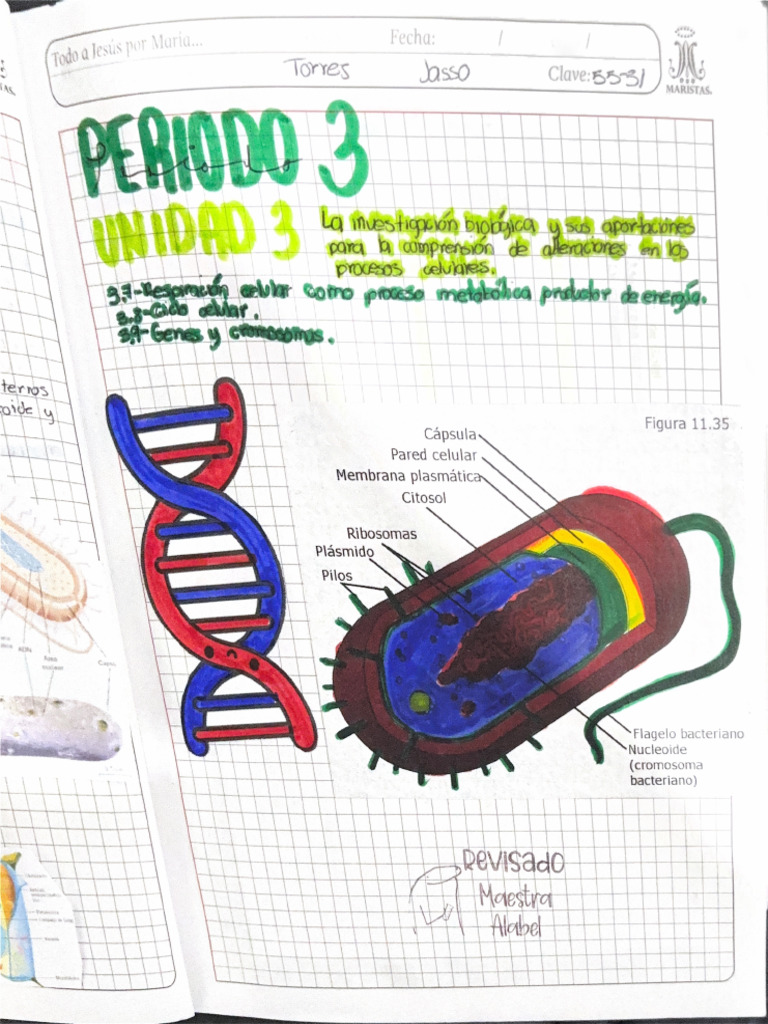 Todo a Jesús por María...
Fecha: / /
Torres Jasso Clave: 55-31
MARISTAS.
PERIODO 3
Periodo
UNIDAD 3
La investigación biológica y sus aportaciones
para la comprensión de alteraciones en los
procesos celulares.
3.7-Respiración celular como proceso metabólica productor de energía.
3.8-Ciclo celular.
3.9-Genes y cromosomas.
ternos
oide y
Figura 11.35
Cápsula
Pared celular
Membrana plasmática
Citosol
Ribosomas
Plásmido
Pilos
Flagelo bacteriano
Nucleoide
(cromosoma
bacteriano)
Revisado
Maestra
Alabel